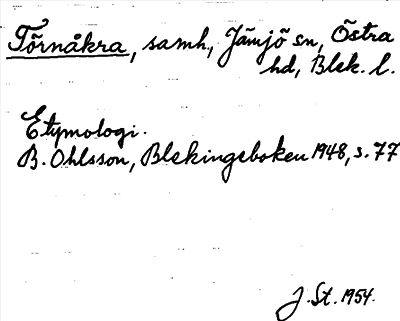 Törnåkra, samh, Jämjö sn, Östra
hd, Blek. l.
Etymologi.
B. Ohlsson, Blekingeboken 1948, s. 77
J. St. 1954.